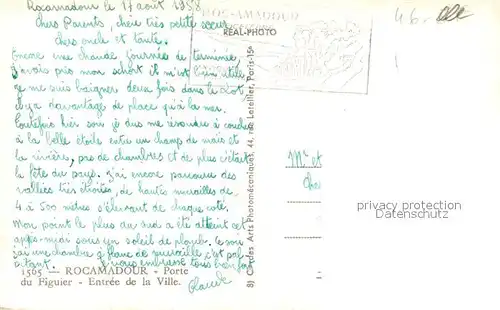 Rocamadour le 17 août 1958
Chers Parents, chère très petite soeur
chers oncle et tante.
Encore une chaude journée de terminée
J'avais pris mon schort il m'est bien utile
je me suis baigner deux fois dans le Lot et
il y a davantage de place qu'à la mer.
Toutefois hier soir je dus me résoudre à coucher
à la belle étoile entre un champ de maïs et
la rivière, pas de chambres et de plus c'était
la fête du pays. J'ai encore parcouru des
vallées très étroites, de hautes murailles de
4 à 500 mètres s'élevant de chaque coté.
Mon point le plus au sud a été atteint cet
après-midi sous un soleil de plomb. Ce soir
j'ai une chambre à flanc de muraille c'est pas
autant. Je vous embrasse tous bien fort
Claude
1565 — ROCAMADOUR - Porte
du Figuier - Entrée de la Ville.
ROCAMADOUR
REAL-PHOTO
Arts Photomécaniques, 44, rue Letellier, Paris-15e
46
Mr et
privacy protection
by